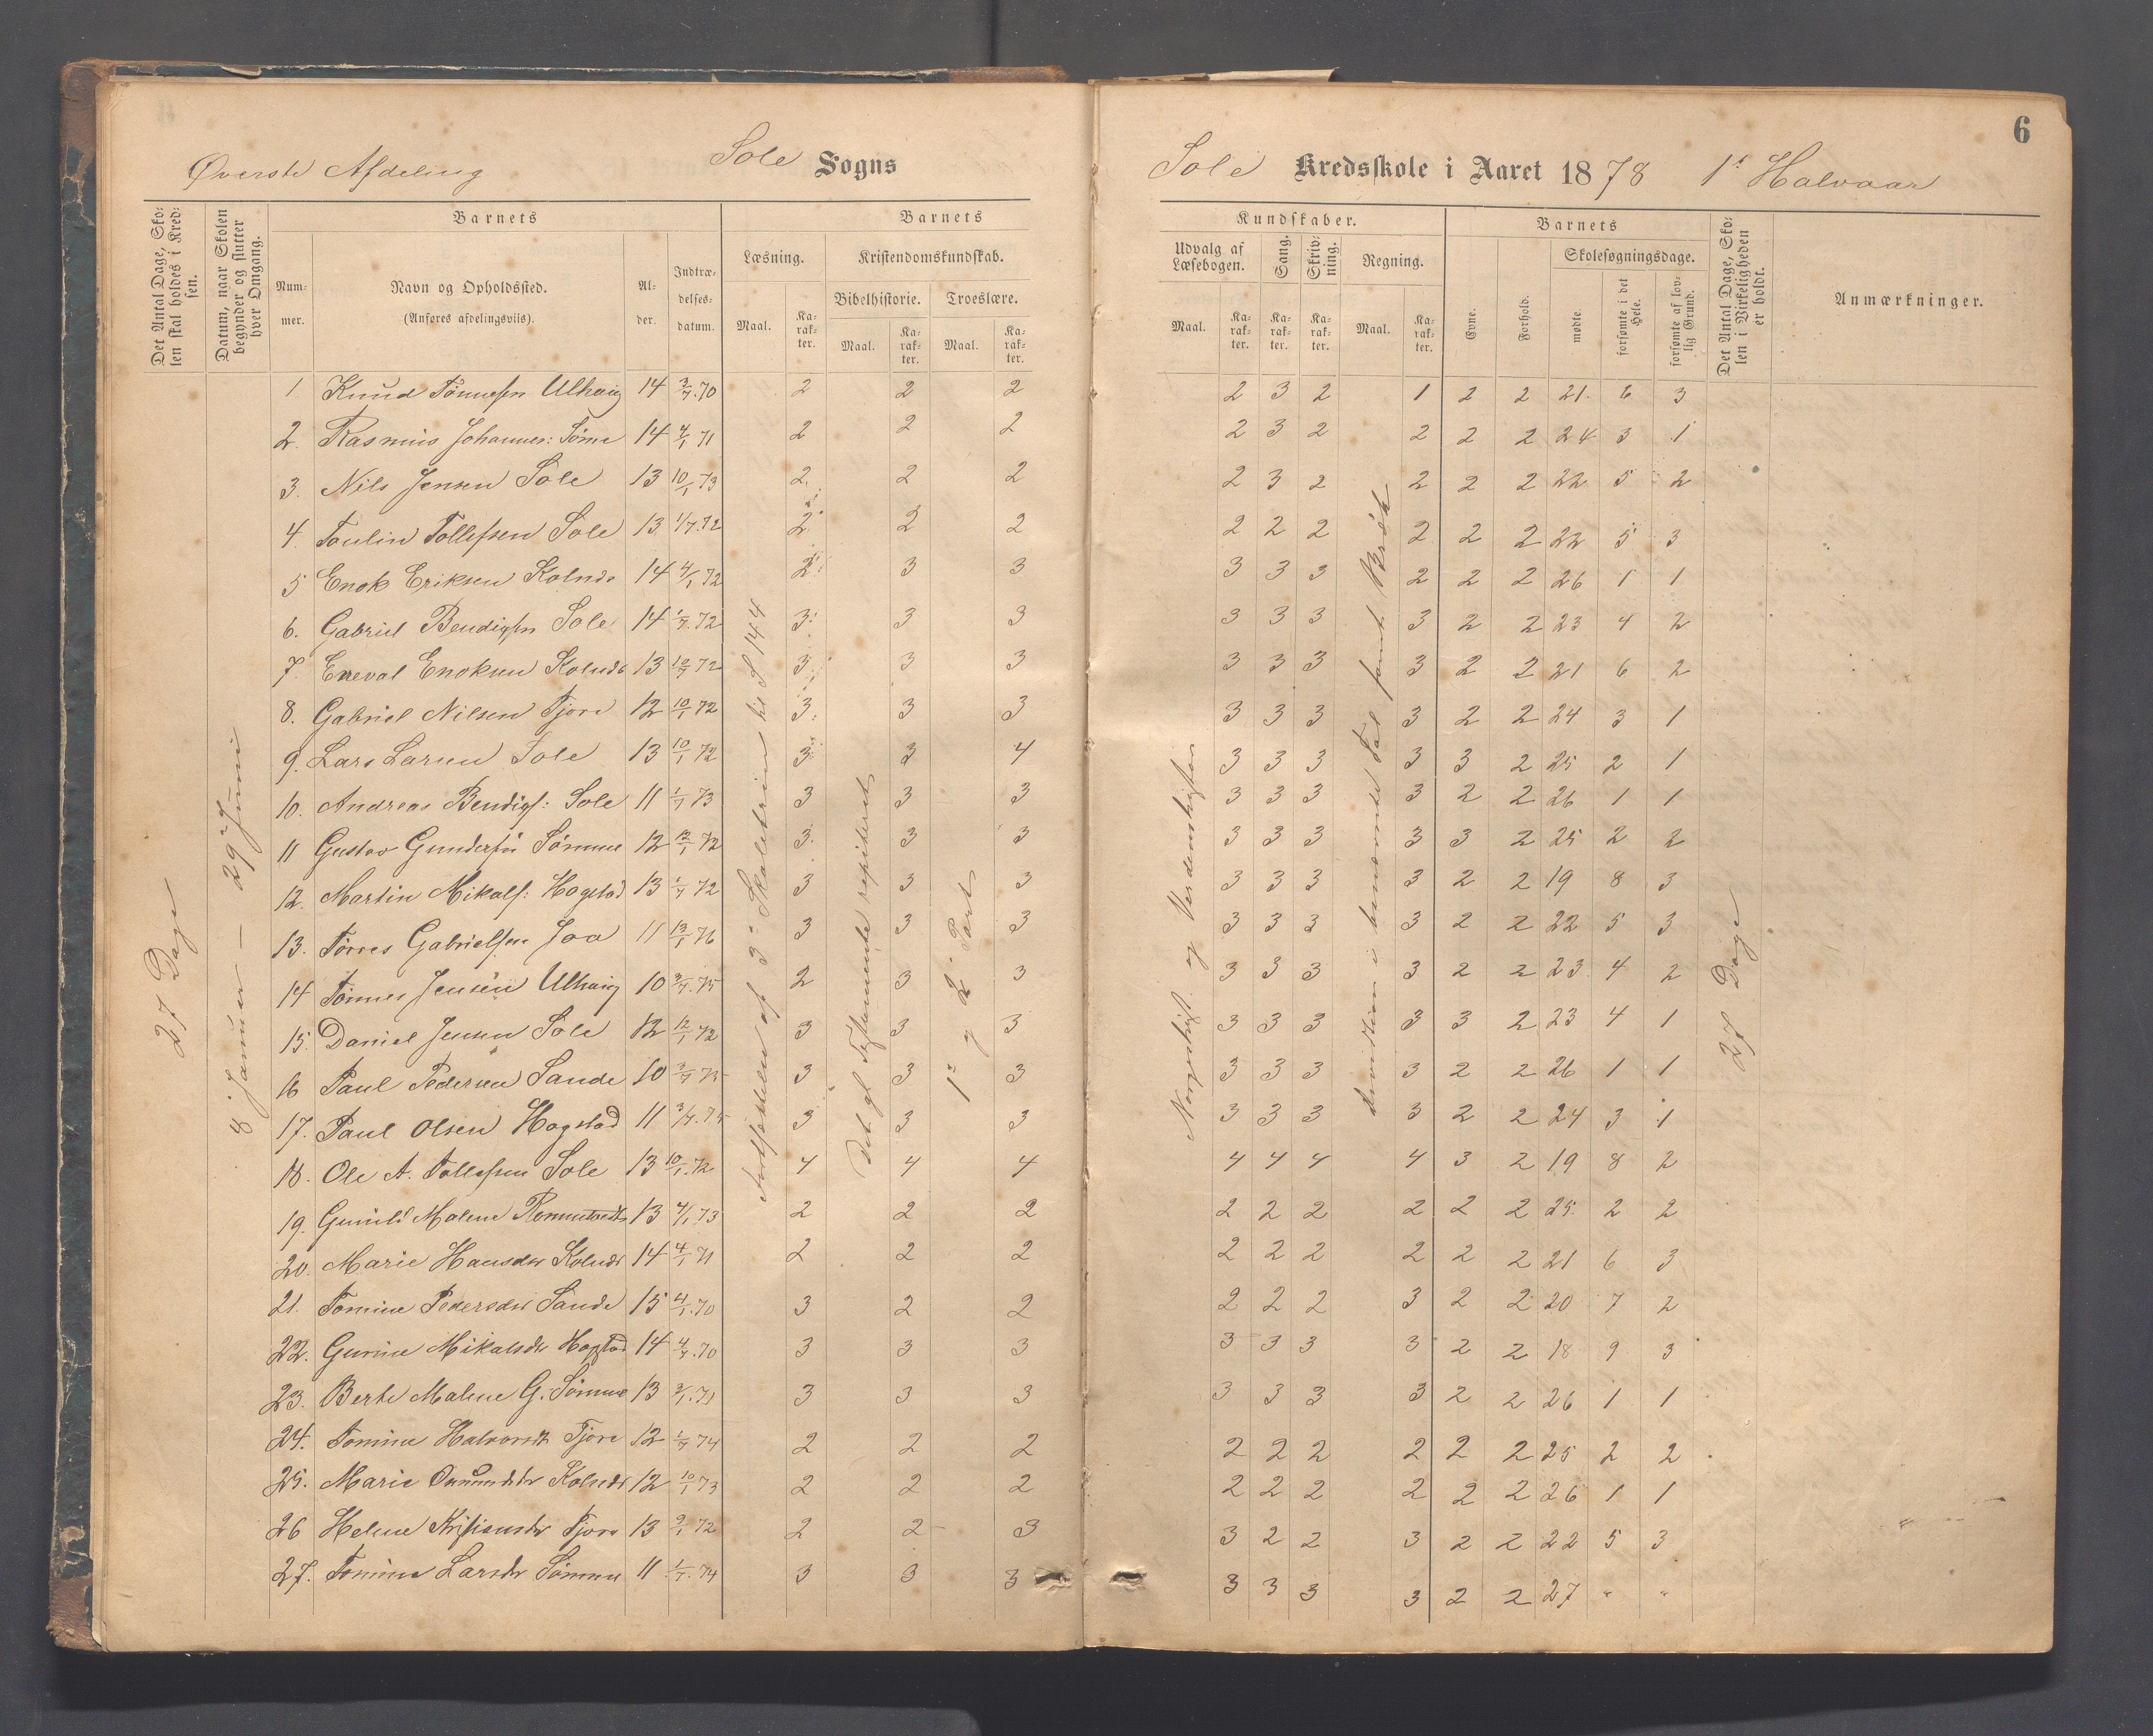 6
Øverste Afdeling Sole Sogns Sole Kredsskole i Aaret 1878 1ᵗ Halvaar
Det Antal Dage, Skolen skal holdes i Kredsen.
Datum, naar Skolen begynder og slutter hver Omgang.
Barnets
Nummer.
Navn og Opholdssted.
(Anføres afdelingsviis).
Alder.
Indtrædelsesdatum.
Barnets Kundskaber.
Læsning. Kristendomskundskab. Udvalg af Læsebogen. Sang. Skrivning. Regning.
Bibelhistorie. Troeslære.
Maal. Karakter. Maal. Karakter. Maal. Karakter. Maal. Karakter. Karakter. Karakter. Maal. Karakter.
Barnets
Evne. Forhold. Skolesøgningsdage.
mødte. forsømte i det Hele. forsømte af lovlig Grund.
Det Antal Dage, Skolen i Virkeligheden er holdt.
Anmærkninger.
27 Dage
8 Januar — 29 Juni
til S 144
Det gl. Testamente repiteret
1ᵗᵉ og 2ᵉ Part
og Verdenshistorien
i benævnte Tal samt Brøk
27 Dage
1 Knud Tønnesen Ulhaug 14 3/7.70 2 2 2 2 3 2 1 2 2 21. 6 3
2. Rasmus Johannes: Sømme 14 4/1 71 2 2 2 2 3 2 2 2 2 24 3 1
3. Nils Jensen Sole 13 10/1 73 2 2 2 2 3 2 2 2 2 22 5 2
4. Toulin Tollefsen Sole 13 1/7.72 2 2 2 2 2 2 2 2 2 22 5 3
5 Enok Eriksen Kolnes 14 4/1 72 2 3 3 3 3 3 2 2 2 26 1 1
6. Gabriel Bendigsen Sole 14 1/7.72 3 3 3 3 3 3 3 2 2 23 4 2
7. Eneval Enoksen Kolnes 13 10/7 72 3 3 3 3 3 3 3 2 2 21 6 2
8. Gabriel Nilsen Tjora 12 10/1 72 3 3 3 3 3 3 3 2 2 24 3 1
9. Lars Larsen Sole 13 10/1 72 3 3 4 3 3 3 3 3 2 25 2 1
10. Andreas Bendigs: Sole 11 1/7 73 3 3 3 3 3 3 3 2 2 26 1 1
11 Gustav Gundersen Sømme 12 12/1 72 3 3 3 3 3 3 3 3 2 25 2 2
12. Martin Mikals: Hogstad 13 1/7 72 3 3 3 3 3 3 3 2 2 19 8 3
13. Tørres Gabrielsen Joa 11 13/1 76 3 3 3 3 3 3 3 2 2 22 5 3
14 Tønnes Jensen Ulhaug 10 3/7.75 2 3 3 3 3 3 3 2 2 23 4 2
15. Daniel Jensen Sole 12 12/1 72 3 3 3 3 3 3 3 3 2 23 4 1
16 Paul Pedersen Sande 10 3/7 75 3 3 3 3 3 3 3 2 2 26 1 1
17. Paul Olsen Hogstad 11 3/7.75 3 3 3 3 3 3 3 2 2 24 3 1
18. Ole A. Tollefsen Sole 13 10/1.72 4 4 4 4 4 4 4 3 2 19 8 2
19. Gunild Malene 13 4/1 73 2 2 2 2 2 2 2 2 2 25 2 2
20. Marie Hansdtr Kolnes 14 4/1 71 2 2 2 2 2 2 2 2 2 21 6 3
21. Tomine Pedersdtr Sande 15 4/1.70 3 2 2 2 2 2 3 2 2 20 7 2
22. Gurine Mikalsdtr Hogstad 14 4/7.70 3 3 3 3 3 3 3 2 2 18 9 3
23. Berte Malene G. Sømme 13 3/1.71 3 3 3 3 3 3 3 2 2 26 1 1
24. Tomine Halvorsdtr Tjora 12 1/7 74 2 2 2 2 2 2 2 2 2 25 2 2
25. Marie Osmundsdtr Kolnes 12 10/1 73 2 2 2 2 2 2 2 2 2 26 1 1
26 Helene Kristiansdtr Tjora 13 9/1 72 2 2 3 3 2 2 3 2 2 22 5 3
27. Tomine Larsdtr Sømme 11 1/7.74 3 3 3 3 3 3 3 2 2 27 " "